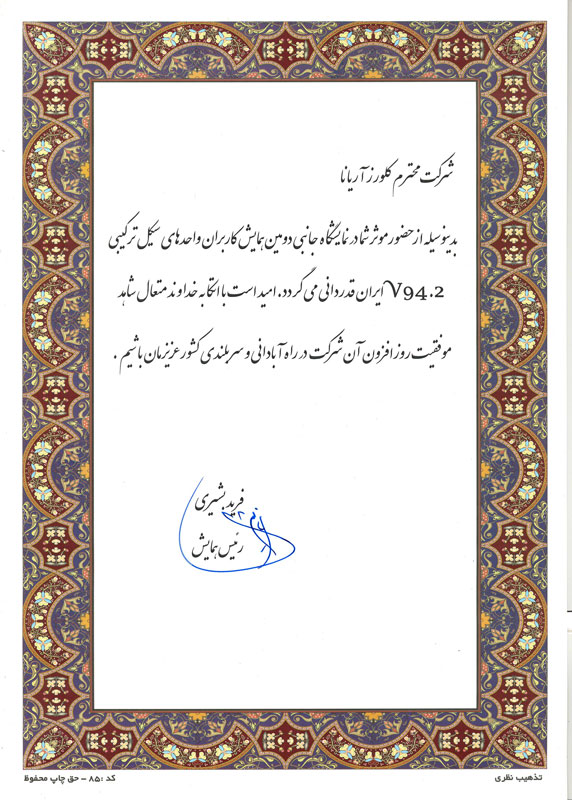 شرکت محترم کلورز آریانا
بدینوسیله از حضور موثر شما در نمایشگاه جانبی دومین همایش کاربران واحدهای سیکل ترکیبی
V94.2 ایران قدردانی می گردد. امید است با اتکا به خداوند متعال شاهد
موفقیت روز افزون آن شرکت در راه آبادانی و سربلندی کشور عزیزمان باشیم .
فرید بشیری
رئیس همایش
تذهیب نظری
کد :۸۵ - حق چاپ محفوظ